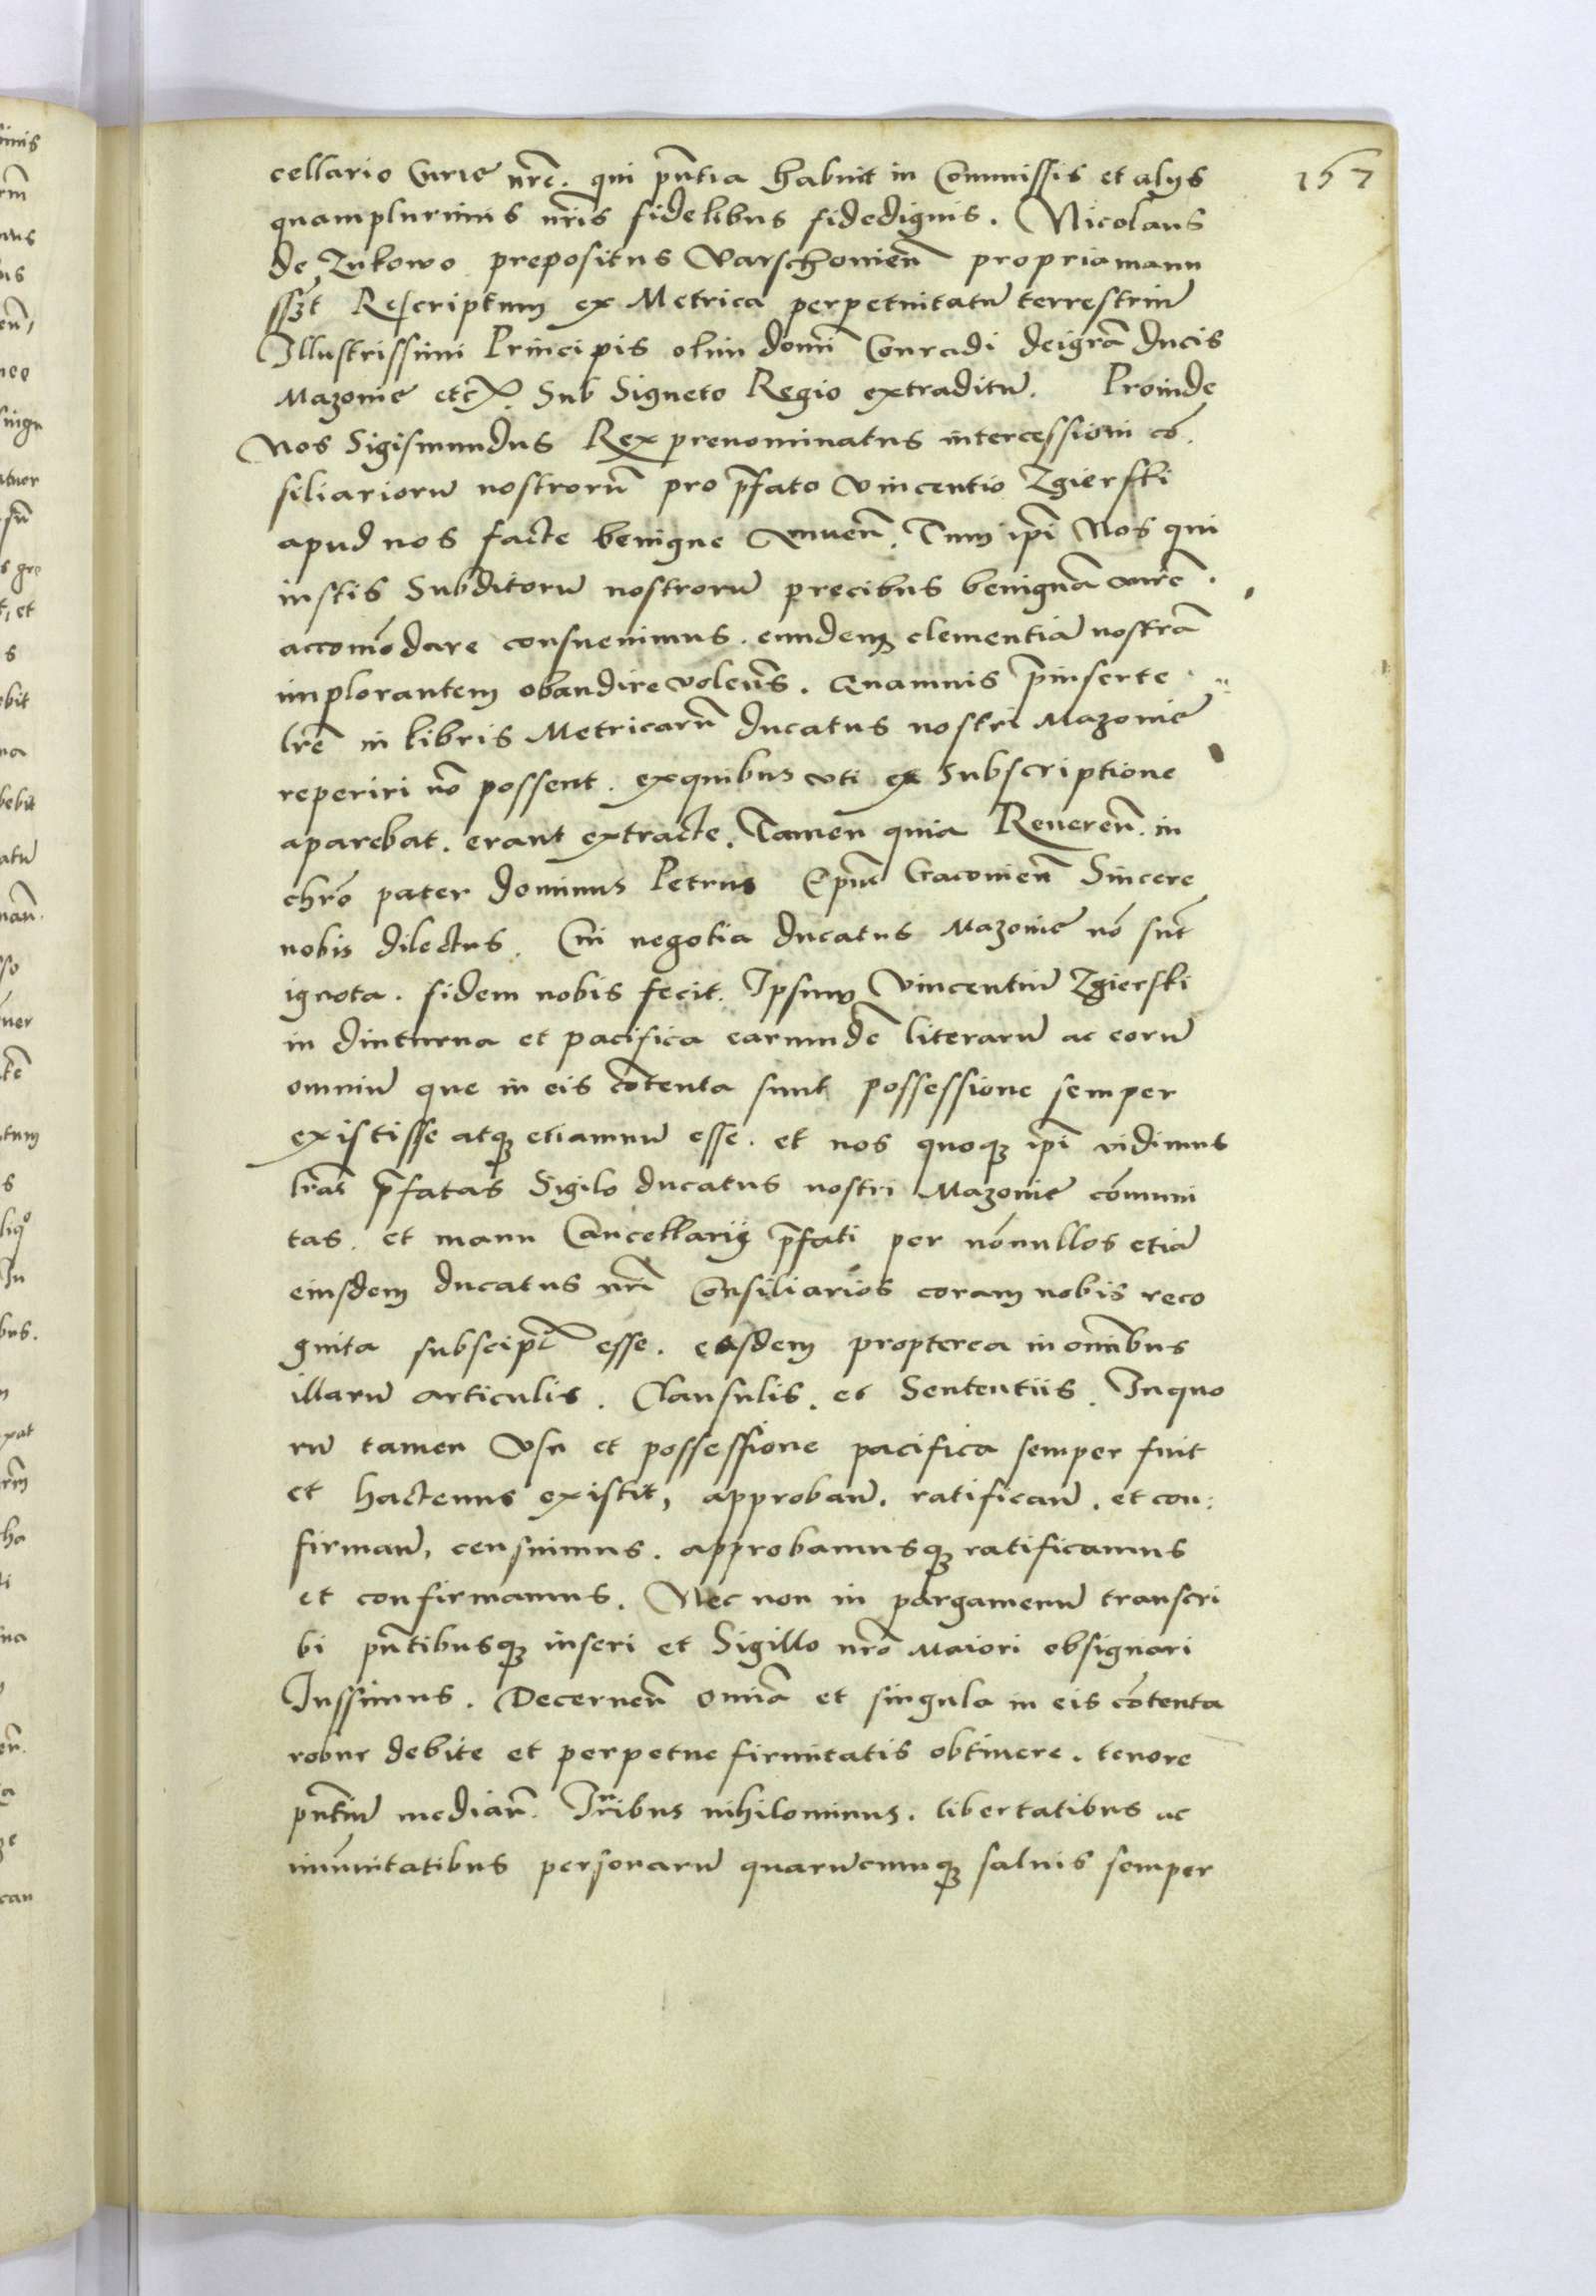 157
cellario Curie nr̃e. qui pñtia habuit in Commissis et alys
quamplurimis nr̃is fidelibus fidedignis. Nicolaus
de Zukowo prepositus Varschouień propriamanu
sszt Rescriptum ex Metrica perpetuitatũ terrestriũ
Illustrissimi Principis olim domĩ Conradi deigrã ducis
Mazouie etc̃. Sub Signeto Regio extraditũ. Proinde
Nos Sigismundus Rex prenominatus intercessioni cõ
siliariorũ nostrorũ pro p̃fato Vincentio Zgierski
apud nos facte benigne Annueñ. Tum ip̃i Nos qui
iustis Subditorũ nostrorũ precibus benignã aurẽ.
accom̃odare consueuimus. eundem clementiã nostrã
implorantem obaudire voleñs. Quamuis p̃inserte
lr̃e in libris Metricarũ ducatus nostri Mazouie
reperiri nõ possent. exquibus vti ex Subscriptione
aparebat. erant extracte. Tamen quia Reuereñ. in
chr̃o pater dominus Petrus Ep̃us Cracouień Sincere
nobis dilectus. Cui negotia ducatus Mazouie nõ sũt
ignota. fidem nobis fecit. Ipsum Vincentiũ Zgierski
in diuturna et pacifica earundẽ literarũ ac eorũ
omniũ que in eis cõtenta sunt possessione semper
extitisse atq; etiamnũ esse. et nos quoq; ip̃i vidimus
lr̃as p̃fatas Sigilo ducatus nostri Mazouie cõmuni
tas. et manu Cancellarij p̃fati per nõnullos etiã
eiusdem ducatus nr̃i Consiliarios coram nobis reco
gnita subscip̃t esse. easdem propterea in omĩbus
illarũ articulis. Clausulis. et Sententiis. Inquo
rũ tamen vsu et possessione pacifica semper fuit
et hactenus existit, approbañ. ratificañ. et con:
firmañ, censuimus. approbamusq; ratificamus
et confirmamus. Nec non in pargamenũ transcri
bi pñtibusq; inseri et Sigillo nr̃o Maiori obsignari
Iussimus. Decerneñ omĩa et singula in eis cõtenta
robur debite et perpetue firmitatis obtinere. tenore
pñtiũ mediañ. Iuribus nihilominus. libertatibus ac
im̃unitatibus personarũ quarũcumq; saluis semper